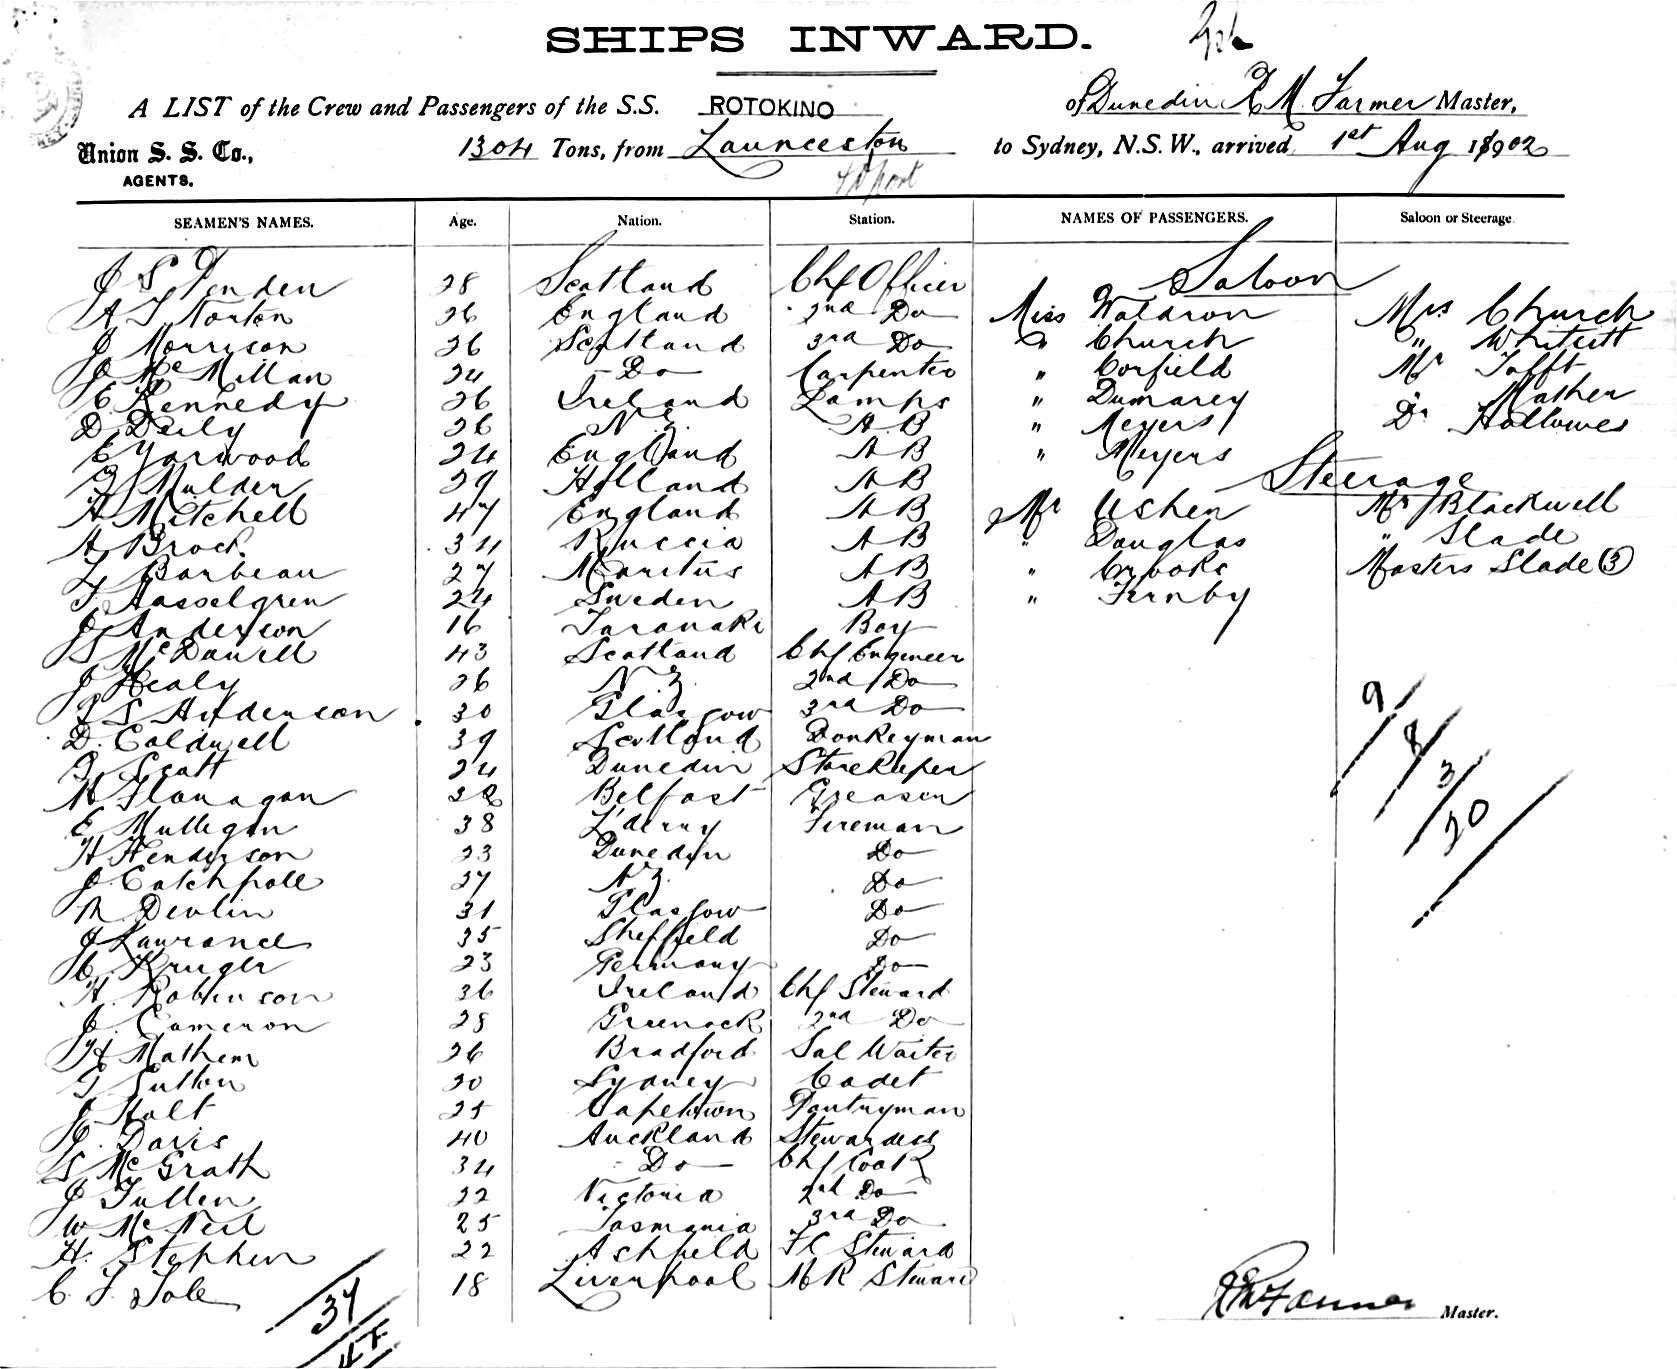 SHIPS INWARD.
A LIST of the Crew and Passengers of the S.S. ROTOKINO of Dunedin R M Farmer Master,
Union S. S. Co., 1304 Tons, from Launceston to Sydney, N.S.W., arrived 1st Aug 1902
AGENTS.
SEAMEN'S NAMES. Age. Nation. Station. NAMES OF PASSENGERS. Saloon or Steerage
Saloon
J S 28 Scotland Chf Officer
A T Norton 26 England 2nd Do Miss Waldron Mrs Church
J Morrison 26 Scotland 3rd Do " Church "
J McMillan 24 Do Carpenter " Corfield Mr Tofft
C Kennedy 26 Ireland Lamps " Dumarey " Mather
D Daily 26 N.Z. A.B " Meyers Dr Hallowes
E Yarwood 24 England A B " Meyers
Steerage
J Mulder 29 Holland A B
H Mitchell 47 England A B Mr Usher Mr Blackwell
A Brock 34 Russia A B " Douglas " Slade
L Barbeau 27 Maritus A B " Crooks Masters Slade (3)
F Hasselgren 24 Sweden A B " Fernby
J Anderson 16 Taranaki Boy
S McDowell 43 Scotland Chf Engineer
J Healy 26 N.Z. 2nd Do
J S Anderson 30 Glasgow 3rd Do
D. Coldwell 39 Scotland Donkeyman
J Scott 24 Dunedin Storekeeper
M Flanagan Belfast Greaser
E Mulligan 38 L'derry Fireman
H Henderson 23 Dunedin Do
J. Catchpole 27 N.Z. Do
R Devlin 31 Glasgow Do
J Lawrance 35 Sheffield Do
C. Kruger 23 Germany Do
H. Robinson 36 Ireland Chf Steward
J. Cameron 28 Greenock 2nd Do
H Mathem 26 Bradford Sal Waiter
G Sutton 20 Sydney Cadet
J Holt 25 Capetown Pantryman
J. Davis 40 Auckland Stewardess
S McGrath 34 Do Chf Cook
J Fullen 22 Victoria 2nd Do
W McNeil 25 Tasmania 3rd Do
H. Stephen 22 Ashfield F C Steward
C. F. Sole 18 Liverpool M R Steward
9
8
3
20
37
R M Farmer Master.